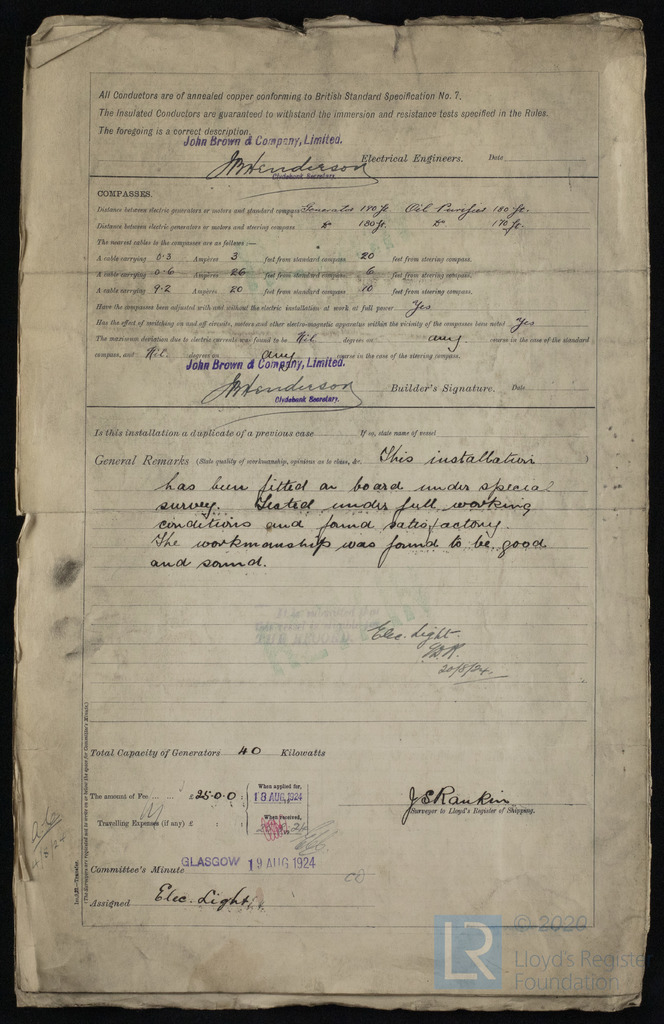 All Conductors are of annealed copper conforming to British Standard Specification No. 7.
The Insulated Conductors are guaranteed to withstand the immersion and resistance tests specified in the Rules.
The foregoing is a correct description.
John Brown & Company, Limited.
J B Henderson Electrical Engineers. Date
Clydebank Secretary.
COMPASSES.
Distance between electric generators or motors and standard compass Generator 190 ft. Oil Purifier 180 ft.
Distance between electric generators or motors and steering compass Do 180 ft. Do 170 ft.
The nearest cables to the compasses are as follows:—
A cable carrying 0.3 Ampères 3 feet from standard compass 20 feet from steering compass.
A cable carrying 0.6 Ampères 26 feet from standard compass 6 feet from steering compass.
A cable carrying 9.2 Ampères 20 feet from standard compass 10 feet from steering compass.
Have the compasses been adjusted with and without the electric installation at work at full power Yes
Has the effect of switching on and off circuits, motors and other electro-magnetic apparatus within the vicinity of the compasses been noted Yes
The maximum deviation due to electric currents was found to be Nil. degrees on any course in the case of the standard
compass, and Nil. degrees on any course in the case of the steering compass.
John Brown & Company, Limited.
J B Henderson Builder's Signature. Date
Clydebank Secretary.
Is this installation a duplicate of a previous case If so, state name of vessel
General Remarks (State quality of workmanship, opinions as to class, &c. This installation )
has been fitted on board under special
survey. Tested under full working
conditions and found satisfactory.
The workmanship was found to be good
and sound.
Elec. Light.
20/8/24.
Total Capacity of Generators 40 Kilowatts
The amount of Fee ... ... £ 25:0:0 : When applied for, 18 AUG 1924
J E Rankin
Surveyor to Lloyd's Register of Shipping.
Travelling Expenses (if any) £ : : When received,
Committee's Minute GLASGOW 19 AUG 1924
Assigned Elec. Light
© 2020
LR Lloyd's Register
Foundation